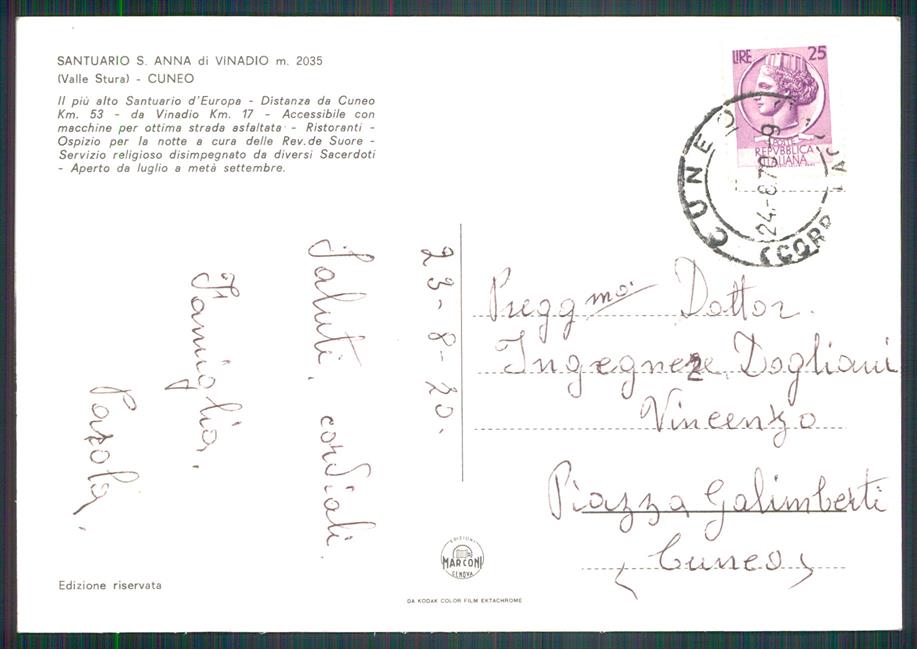 SANTUARIO S. ANNA di VINADIO m. 2035
(Valle Stura) - CUNEO
Il più alto Santuario d'Europa - Distanza da Cuneo
Km. 53 - da Vinadio Km. 17 - Accessibile con
macchine per ottima strada asfaltata - Ristoranti -
Ospizio per la notte a cura delle Rev.de Suore -
Servizio religioso disimpegnato da diversi Sacerdoti
- Aperto da luglio a metà settembre.
LIRE 25
POSTE
REPVBBLICA
ITALIANA
CUNEO
24.-8.70-9
(CORR
23-8-70.
Saluti. cordiali.
Famiglia.
Preggmo. Dottor.
Ingegnere Dogliani
Vincenzo
Piazza Galimberti
(Cuneo)
EDIZIONI
MARCONI
GENOVA
Edizione riservata
DA KODAK COLOR FILM EKTACHROME